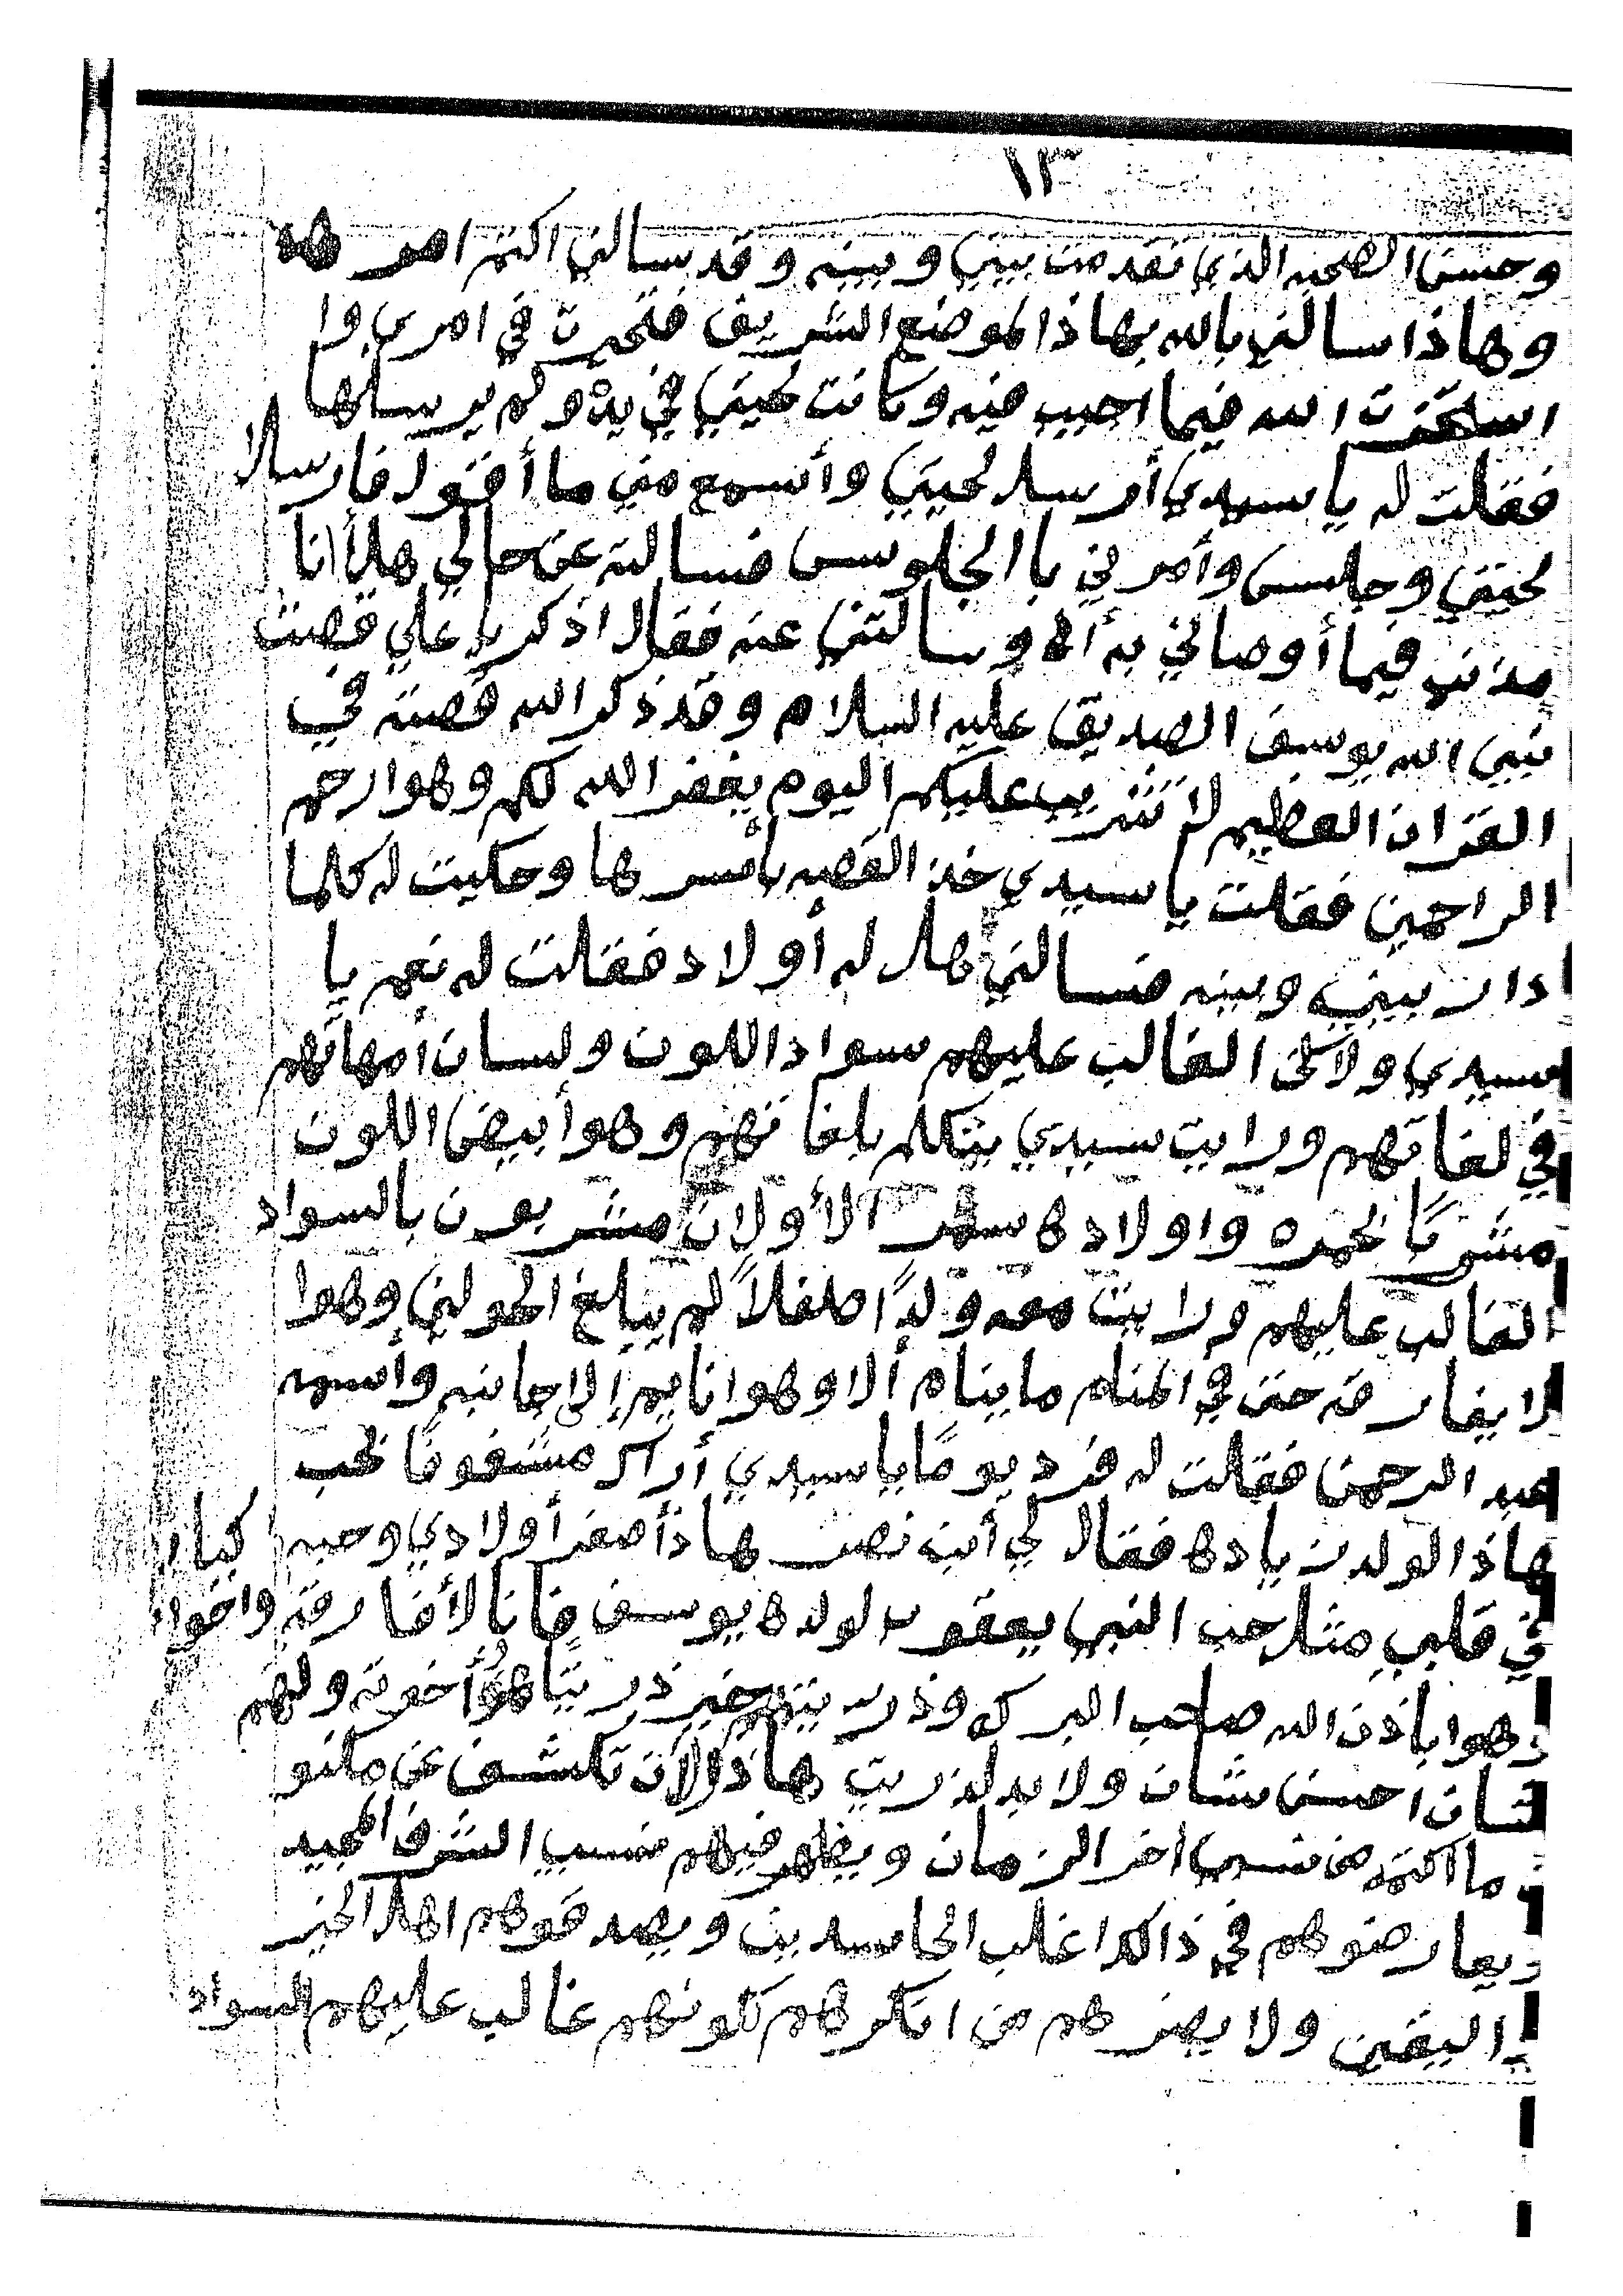 ١٣
وحسن الصحبه الذي تقدمت بيني وبينه وقد سالني اكتم امره
وهاذا سالني بالله بهاذا الموضع الشريف فتحيرت في امري وا
استخرت الله فيما اجيب فيه وكانت لحيتي في يده ولم يرسلها
فقلت له يا سيدي أرسل لحيتي وأسمع مني ما أقول فارسل
لحيتي وجلس وأمرني با الجلوس فسالته عن حالي هل أنا
مذنب فيما أوصاني به أخي وسالتني عنه فقال اذكر يا علي قصت
نبي الله يوسف الصديق عليه السلام وقد ذكر الله قصته في
القران العظيم لا تثريب عليكم اليوم يغفر الله لكم وهوا ارحم
الراحمين فقلت يا سيدي خذ القصه بأسرها وحكيت له كلما
دار بيني وبينه فسالني هل له أولاد فقلت له نعم يا
سيدي ولاكن الغالب عليهم سواد اللون ولسان أمهاتهم
في لغاتهم ورايت سيدي يتكلم بلغاتهم وهو أبيض اللون
مشربًا بحمره واولاده سمر الألوان مشربون بالسواد
الغالب عليهم ورايت معه ولدًا طفلاً لم يبلغ الحولين وهوا
لا يفارقه حتى في المنام ما ينام ألا وهوا نايم إلا جانبه وأسمه
عبد الرحمن فقلت له فرد يومًا يا سيدي أراك مشغوفًا بحب
هاذا الولد زياده فقال لي أبنه نصر هاذا أصغر أولادي وحبه
في قلبي مثل حب النبي يعقوب لولده يوسف فانا لأفارقه واخوا
وهوا باذن الله صاحب البركه وذريته خير ذريتًا أخوته ولهم
شان احسن شان ولا بد لذريت هاذولان تكشف عن مكنو
ما اكتمه من نسبي اخر الزمان ويظهر فيهم نسب الشرف المجيد
ويعارضوهم في ذالك اغلب الحاسدين ويصدقوهم اهل الخير
واليقين ولا يضرهم من انكرهم كونهم غالب عليهم السواد